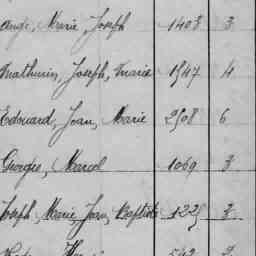 Ange, Marie, Joseph 1403 3
Mathurin, Joseph, Marie 1547 4
Edouard, Jean, Marie 2508 6
Georges, Marcel 1069 3
Joseph, Marie, Jean, Baptiste 1225 3